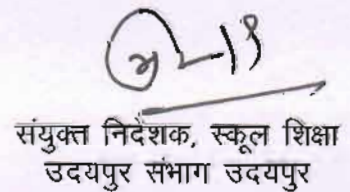 संयुक्त निदेशक, स्कूल शिक्षा
उदयपुर संभाग उदयपुर